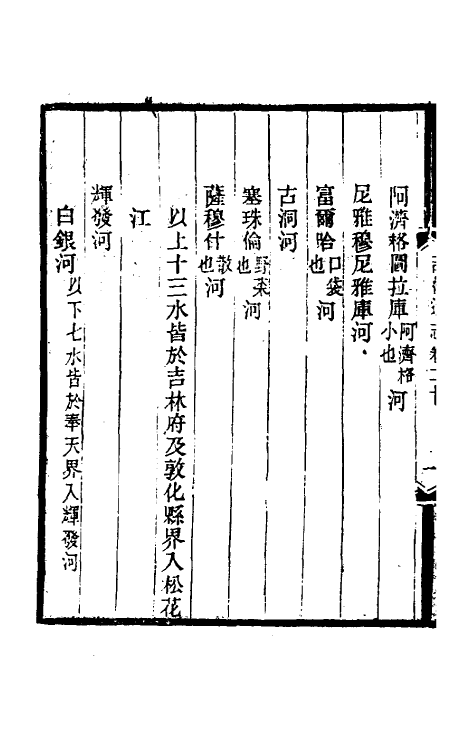 阿濟格圖拉庫阿濟格小也河
尼雅穆尼雅庫河
富爾哈口袋也河
古洞河
塞珠倫野菜也河
薩穆什散也河
以上十三水皆於吉林府及敦化縣界入松花
江
輝發河
白銀河以下七水皆於奉天界入輝發河